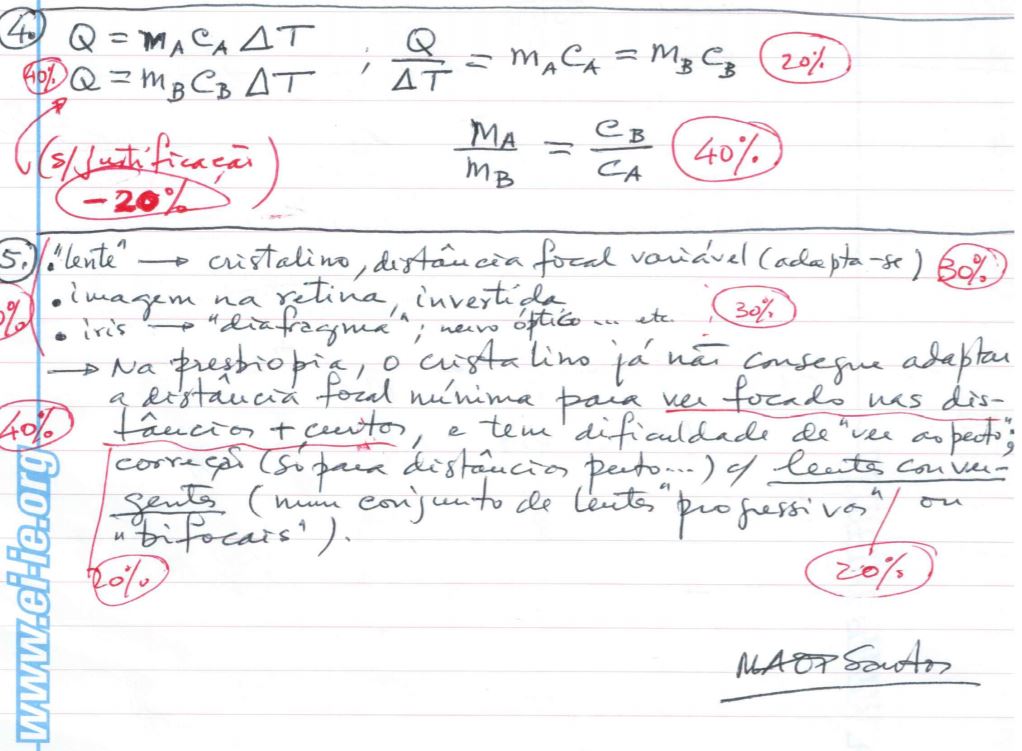 4.
Q = mA CA ΔT ; Q/ΔT = mA CA = mB CB 20%
40% Q = mB CB ΔT
mA/mB = CB/CA 40%
(s/ justificação)
-20%
5. • "lente" → cristalino, distância focal variável (adapta-se) 30%
• imagem na retina, invertida
• iris → "diafragma"; nervo óptico... etc. 30%
→ Na presbiopia, o cristalino já não consegue adaptar
a distância focal mínima para ver focado nas dis-
40% tâncias + curtas, e tem dificuldade de "ver ao perto";
correção (só para distâncias perto...) c/ lentes conver-
gentes (num conjunto de lentes "progressivas" ou
"bifocais").
20% 20%
Santos
www.ei-ie.org